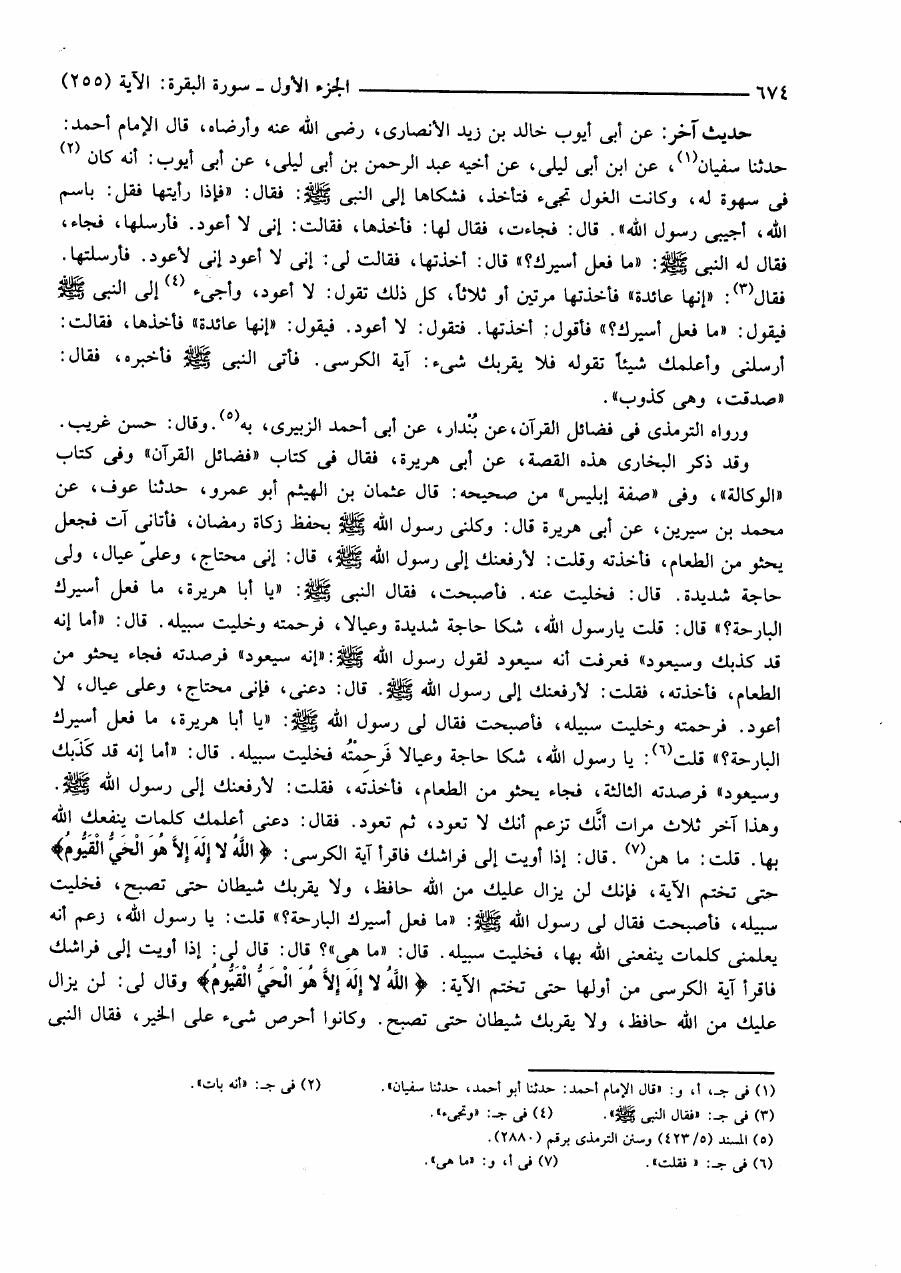 ٦٧٤ ــــــــــــــــــــ الجزء الأول ـ سورة البقرة: الآية (٢٥٥)
حديث آخر: عن أبى أيوب خالد بن زيد الأنصارى، رضى الله عنه وأرضاه، قال الإمام أحمد:
حدثنا سفيان(١)، عن ابن أبى ليلى، عن أخيه عبد الرحمن بن أبى ليلى، عن أبى أيوب: أنه كان (٢)
فى سهوة له، وكانت الغول تجىء فتأخذ، فشكاها إلى النبى ﷺ: فقال: «فإذا رأيتها فقل: باسم
الله، أجيبى رسول الله». قال: فجاءت، فقال لها: فأخذها، فقالت: إنى لا أعود. فأرسلها، فجاء،
فقال له النبى ﷺ: «ما فعل أسيرك؟» قال: أخذتها، فقالت لى: إنى لا أعود إنى لأعود. فأرسلتها.
فقال(٣): «إنها عائدة» فأخذتها مرتين أو ثلاثاً، كل ذلك تقول: لا أعود، وأجىء (٤) إلى النبى ﷺ
فيقول: «ما فعل أسيرك؟» فأقول: أخذتها. فتقول: لا أعود. فيقول: «إنها عائدة» فأخذها، فقالت:
أرسلنى وأعلمك شيئاً تقوله فلا يقربك شىء: آية الكرسى. فأتى النبى ﷺ فأخبره، فقال:
«صدقت، وهى كذوب».
ورواه الترمذى فى فضائل القرآن،عن بُنْدار، عن أبى أحمد الزبيرى، به(٥).وقال: حسن غريب.
وقد ذكر البخارى هذه القصة، عن أبى هريرة، فقال فى كتاب «فضائل القرآن» وفى كتاب
«الوكالة»، وفى «صفة إبليس» من صحيحه: قال عثمان بن الهيثم أبو عمرو، حدثنا عوف، عن
محمد بن سيرين، عن أبى هريرة قال: وكلنى رسول الله ﷺ بحفظ زكاة رمضان، فأتانى آت فجعل
يحثو من الطعام، فأخذته وقلت: لأرفعنك إلى رسول الله ﷺ، قال: إنى محتاج، وعلىّ عيال، ولى
حاجة شديدة. قال: فخليت عنه. فأصبحت، فقال النبى ﷺ: «يا أبا هريرة، ما فعل أسيرك
البارحة؟» قال: قلت يارسول الله، شكا حاجة شديدة وعيالا، فرحمته وخليت سبيله. قال: «أما إنه
قد كذبك وسيعود» فعرفت أنه سيعود لقول رسول الله ﷺ:«إنه سيعود» فرصدته فجاء يحثو من
الطعام، فأخذته، فقلت: لأرفعنك إلى رسول الله ﷺ. قال: دعنى، فإنى محتاج، وعلى عيال، لا
أعود. فرحمته وخليت سبيله، فأصبحت فقال لى رسول الله ﷺ: «يا أبا هريرة، ما فعل أسيرك
البارحة؟» قلت(٦): يا رسول الله، شكا حاجة وعيالا فَرحِمْتُه فخليت سبيله. قال: «أما إنه قد كَذَبك
وسيعود» فرصدته الثالثة، فجاء يحثو من الطعام، فأخذته، فقلت: لأرفعنك إلى رسول الله ﷺ.
وهذا آخر ثلاث مرات أنَّك تزعم أنك لا تعود، ثم تعود. فقال: دعنى أعلمك كلمات ينفعك الله
بها. قلت: ما هن(٧) .قال: إذا أويت إلى فراشك فاقرأ آية الكرسى: ﴿ اللَّهُ لا إِلَهَ إِلاَّ هُوَ الْحَيُّ الْقَيُّومُ﴾
حتى تختم الآية، فإنك لن يزال عليك من الله حافظ، ولا يقربك شيطان حتى تصبح، فخليت
سبيله، فأصبحت فقال لى رسول الله ﷺ: «ما فعل أسيرك البارحة؟» قلت: يا رسول الله، زعم أنه
يعلمنى كلمات ينفعنى الله بها، فخليت سبيله. قال: «ما هى»؟ قال: قال لى: إذا أويت إلى فراشك
فاقرأ آية الكرسى من أولها حتى تختم الآية: ﴿ اللَّهُ لا إِلَهَ إِلاَّ هُوَ الْحَيُّ الْقَيُّومُ﴾ وقال لى: لن يزال
عليك من الله حافظ، ولا يقربك شيطان حتى تصبح. وكانوا أحرص شىء على الخير، فقال النبى
(١) فى جـ، أ، و: «قال الإمام أحمد: حدثنا أبو أحمد، حدثنا سفيان». (٢) فى جـ: «أنه بات».
(٣) فى جـ: «فقال النبى ﷺ». (٤) فى جـ: «وتجىء».
(٥) المسند (٤٢٣/٥) وسنن الترمذى برقم (٢٨٨٠).
(٦) فى جـ: « فقلت». (٧) فى أ، و: «ما هى».